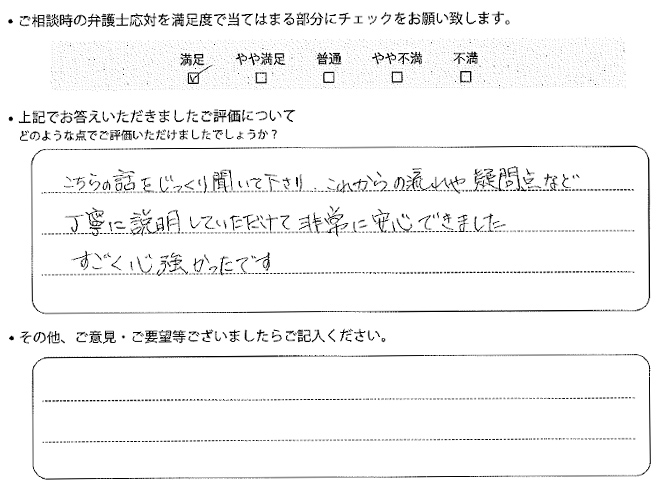 ・ご相談時の弁護士応対を満足度で当てはまる部分にチェックをお願い致します。
満足 やや満足 普通 やや不満 不満
☑ ☐ ☐ ☐ ☐
・上記でお答えいただきましたご評価について
どのような点でご評価いただけましたでしょうか?
こちらの話をじっくり聞いて下さり、これからの流れや疑問点など
丁寧に説明していただけて非常に安心できました
すごく心強かったです
・その他、ご意見・ご要望等ございましたらご記入ください。